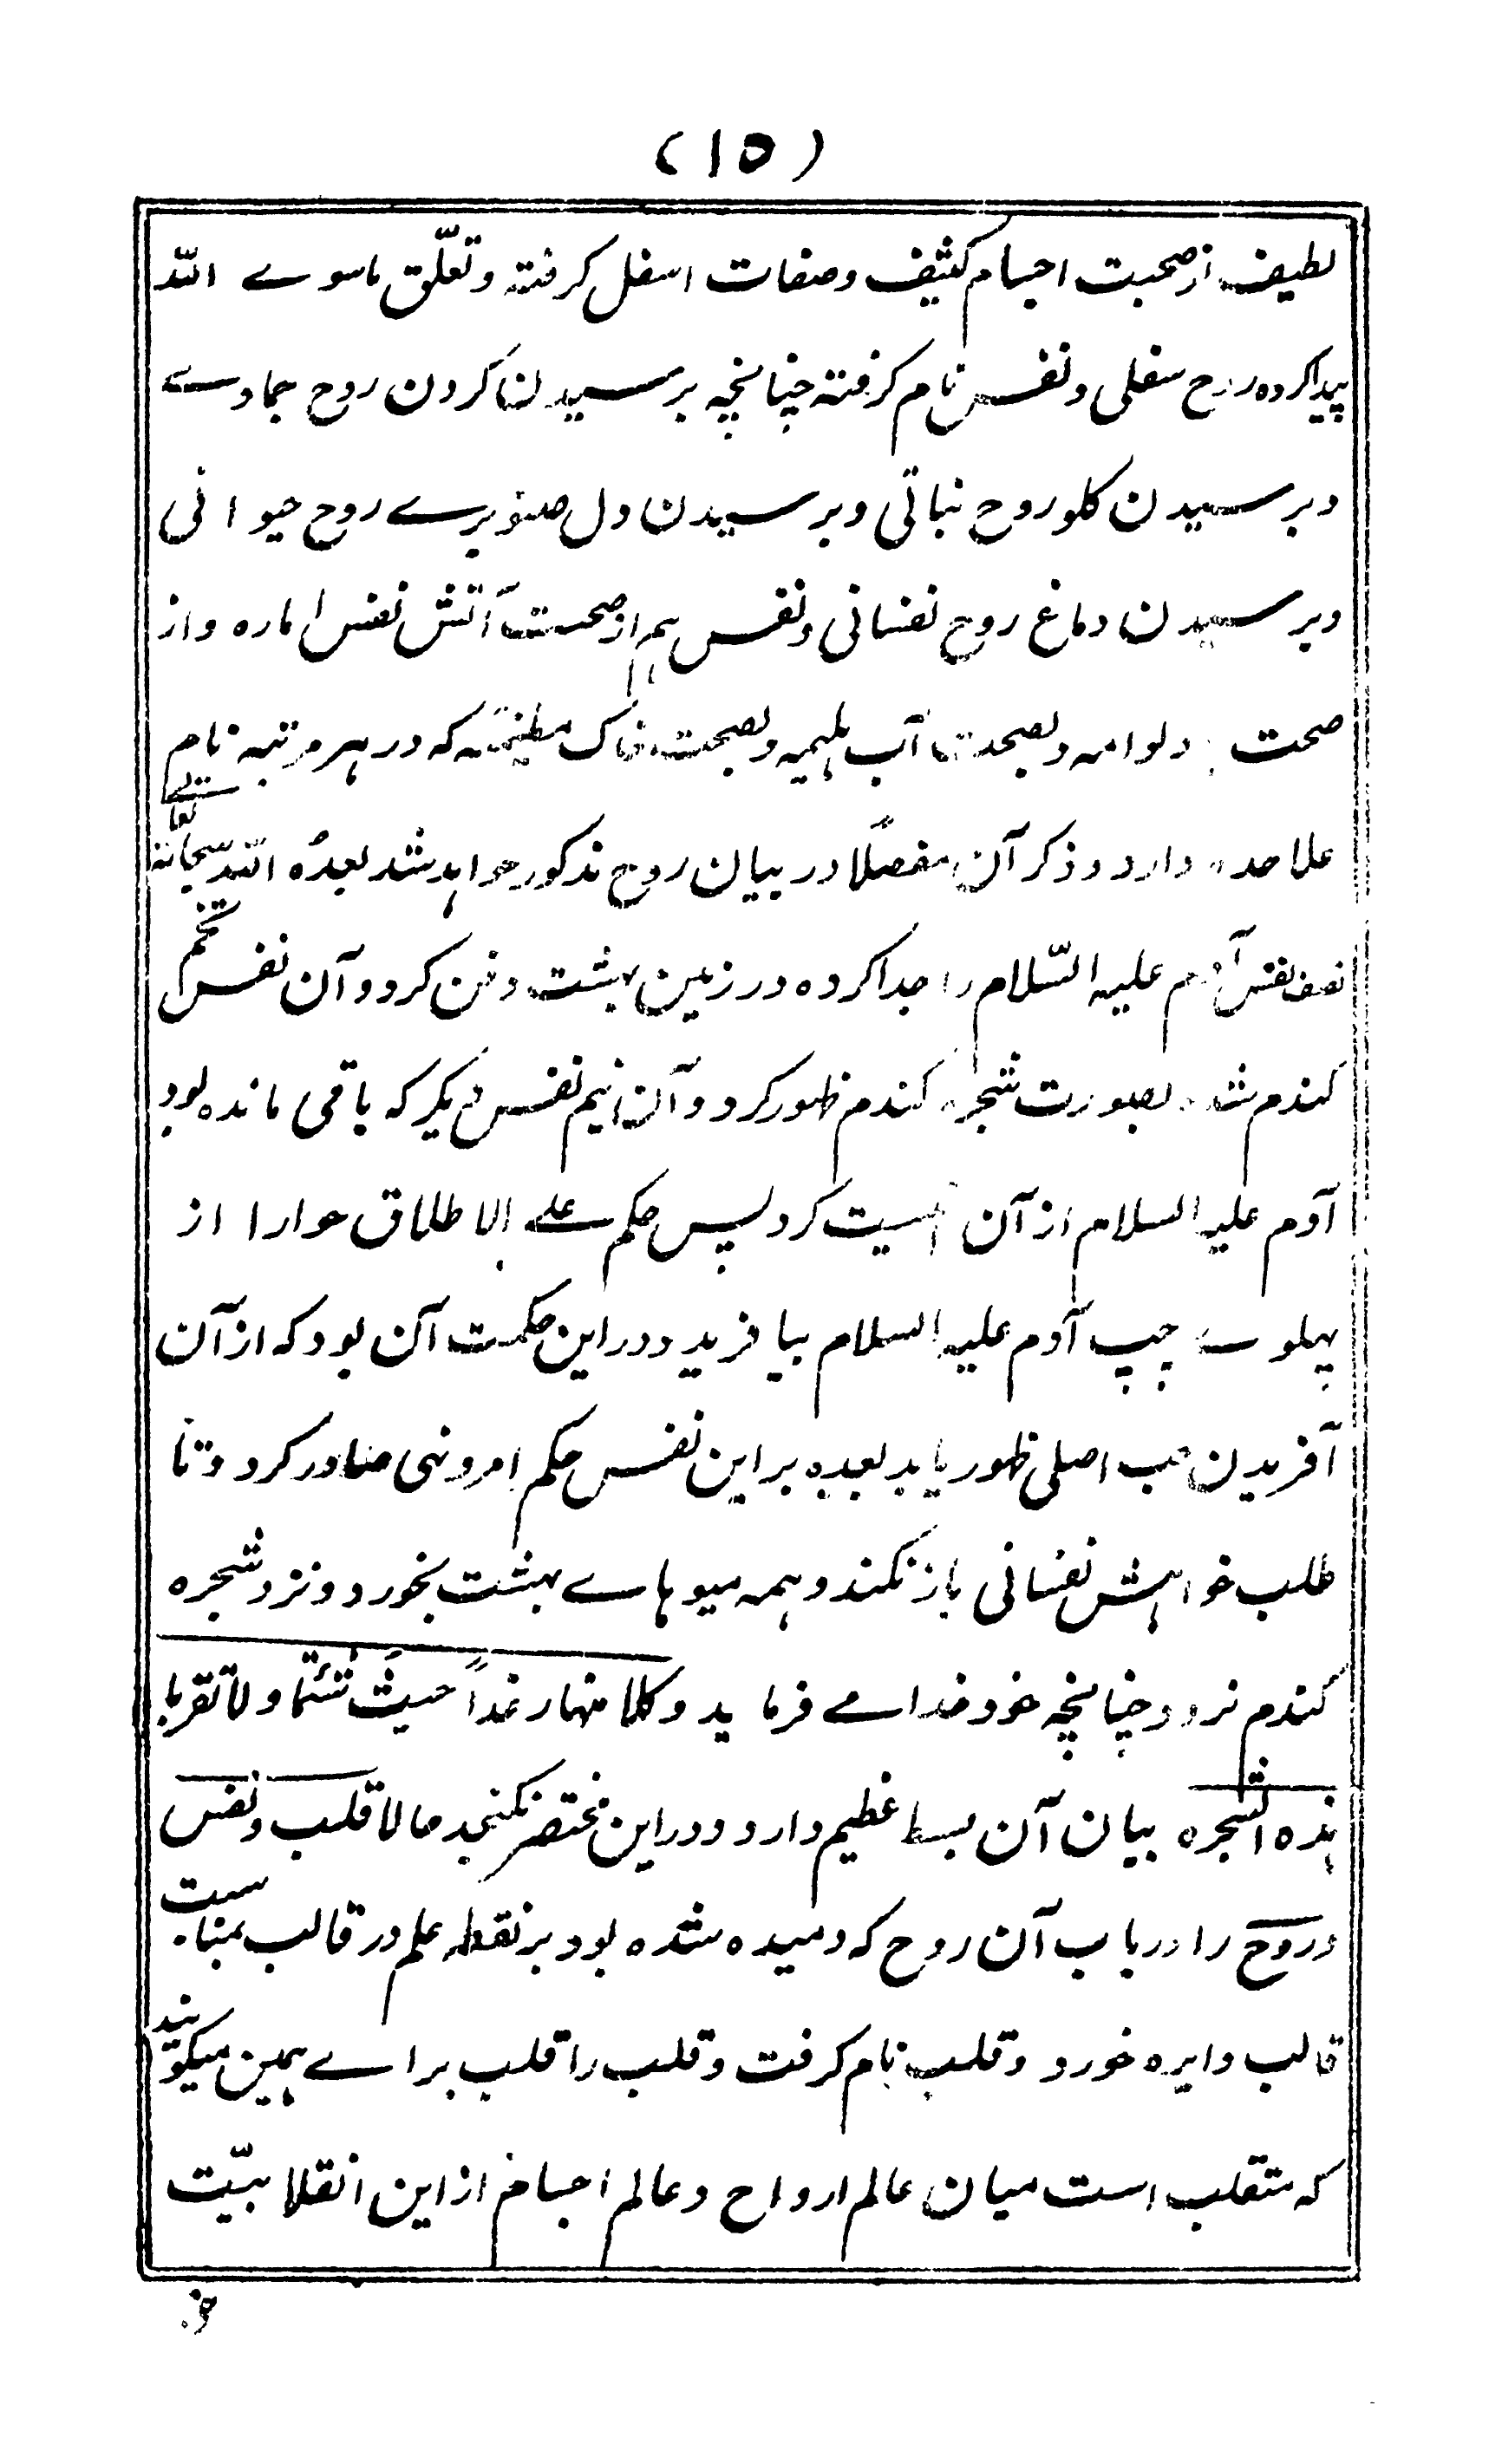 (۱۵)
لطیف از صحبت اجسام کثیف و صفات اسفل گرفته و تعلّق ماسوے اللّٰه
پیدا کرده روح سفلی و نفس نام گرفته چنانچه برسیدن گردن روح جمادے
و برسیدن گلو روح نباتی و برسیدن دل صنوبرے روح حیوانی
و برسیدن دماغ روح نفسانی و نفس هم از صحبت آتش نفس اماره و از
صحبت لوامه و بصحبت آب ملهمه و بصحبت خاک مطمئنه که در هر مرتبه نام
علاحده دارد و ذکر آن مفصلًا در بیان روح مذکور خواهد شد بعدهٗ اللّٰه سبحانه تعالیٰ
نصف نفس آدم علیه السّلام را جدا کرده در زمین بهشت دفن کرد و آن نفس تخم
گندم شده بصورت شجره گندم ظهور کرد و آن نیم نفس دیگر که باقی مانده بود
آدم علیه السلام از آن کرد پس حکم علے الاطلاق حوا را از
پهلوے چپ آدم علیه السلام بیافرید و در این حکمت آن بود که از آن
آفریدن حب اصلی ظهور یابد بعده بر این نفس حکم امر و نهی صادر کرد و تا
طلب خواهش نفسانی باز نکند و همه میوهاے بهشت بخورد و نزد شجره
گندم نرود چنانچه خود خدا مے فرماید وکلا منها رغداً حیث شئتما ولا تقربا
هذه الشجره بیان آن بسط عظیم دارد و در این مختصر نگنجد حالا قلب و نفس
و روح را دریاب آن روح که دمیده شده بود بر نقطه علم در قالب بمناسبت
قالب دایره خورد و قلب نام گرفت و قلب را قلب براے همین میگویند
که متقلب است میان عالم ارواح و عالم اجسام از این انقلابیّت